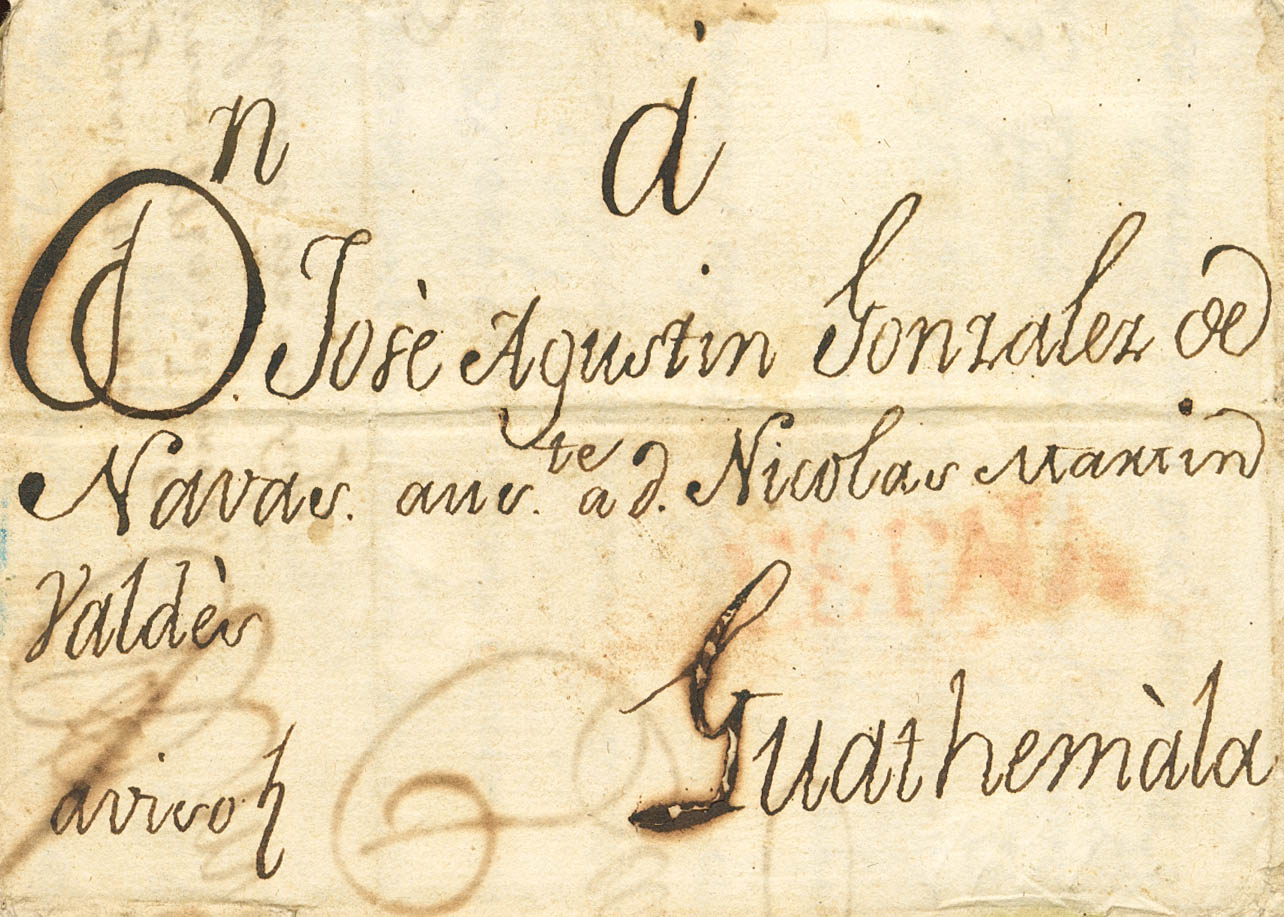 á
Dn Josè Agustin Gonzalez de
Navas. aus.te a d. Nicolas Martin
Valdès
Guathemàla
aviso